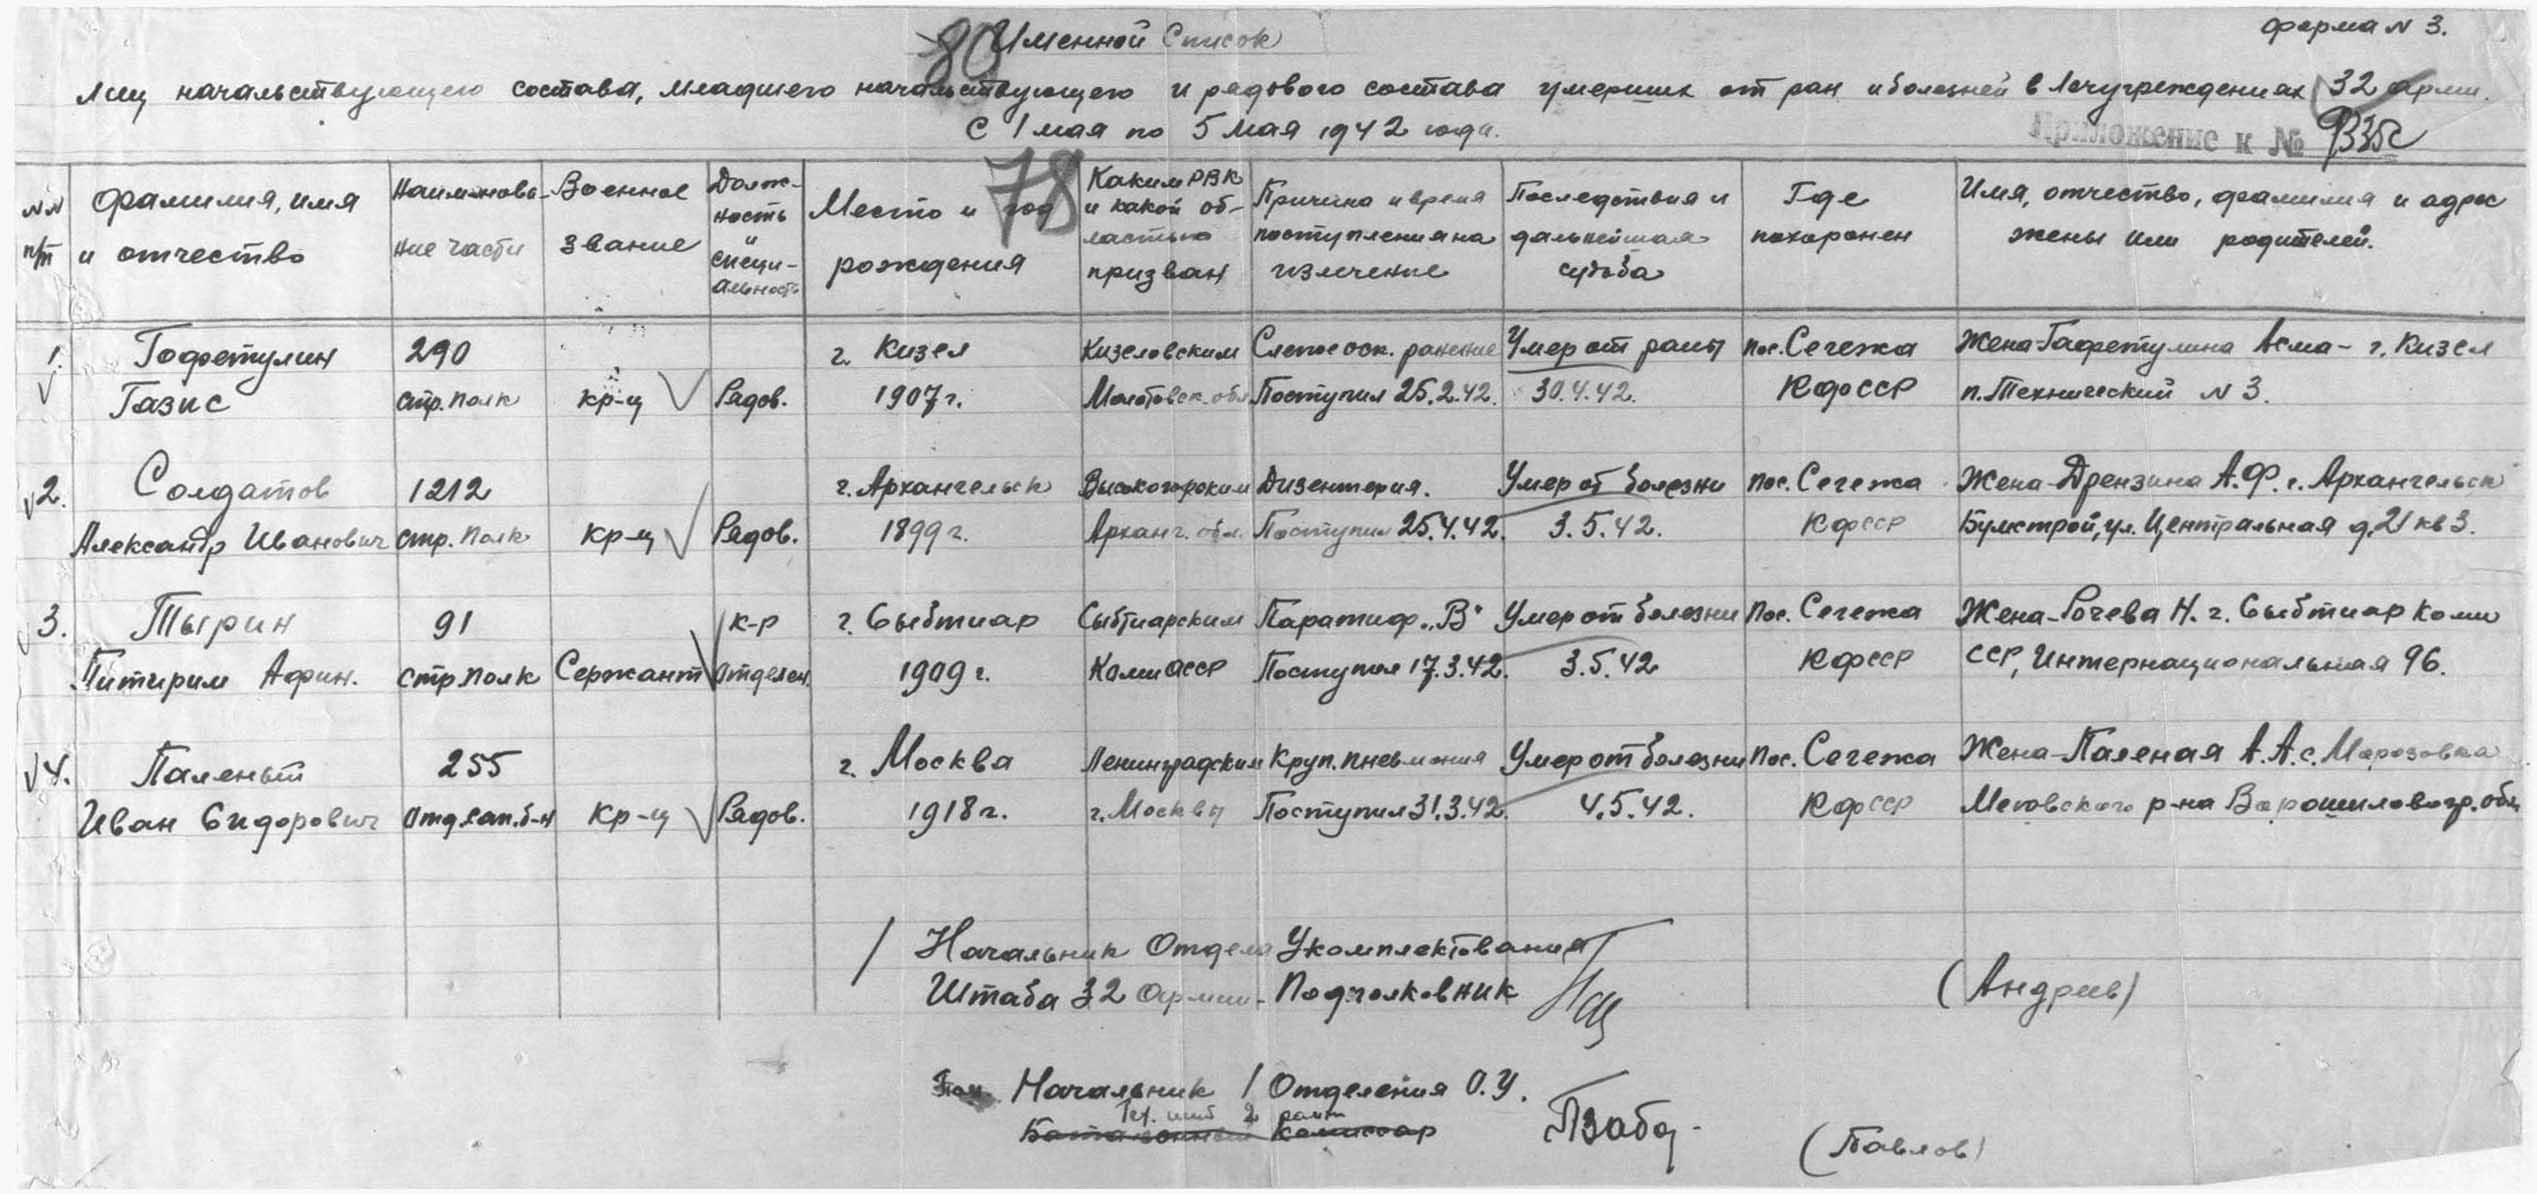 форма N 3.
80
Именной Список
Лиц начальствующего состава, младшего начальствующего и рядового состава умерших от ран и болезней в лечучреждениях 32 армии.
С 1 мая по 5 мая 1942 года.
Приложение к №
78
NN п/п
Фамилия, имя и отчество
Наименование части
Военное звание
Должность и специальность
Место и год рождения
Каким РВК и какой областью призван
Причина и время поступления на излечение
Последствия и дальнейшая судьба
Где похоронен
Имя, отчество, фамилия и адрес жены или родителей.
1. Гофетулин 290 г. Кизел Кизеловским Слепое оск. ранение Умер от раны пос. Сегежа Жена-Гафетулина Асма - г. Кизел
Газис стр. полк кр-ц Рядов. 1907 г. Молотовск. обл Поступил 25.2.42. 30.4.42. КФССР п. Технический N 3.
2. Солдатов 1212 г. Архангельск Высокогорским Дизентерия. Умер от болезни пос. Сегежа Жена-Дрензина А.Ф. г. Архангельск
Александр Иванович стр. полк кр-ц Рядов. 1899 г. Арханг. обл. Поступил 25.4.42. 3.5.42. КФССР Бумстрой, ул. Центральная д. 21 кв 3.
3. Тырин 91 к-р г. Сыбтиар Сыбтиарским Паратиф „В" Умер от болезни Пос. Сегежа Жена-Рочева Н. г. Сыбтиар Коми
Питирим Афин. стр полк Сержант отделен. 1909 г. Коми АССР Поступил 17.3.42. 3.5.42 КФССР ССР, Интернациональная 96.
4. Паленый 255 г. Москва Ленинградским Круп. пневмония Умер от болезни Пос. Сегежа Жена-Паленая А.А. с. Марозовка
Иван Сидорович отд лап. б-н кр-ц Рядов. 1918 г. г. Москвы Поступил 31.3.42. 4.5.42. КФССР Меловского р-на Ворошиловогр. обл
Начальник Отдела Укомплектования
Штаба 32 Армии - Подполковник
(Андреев)
Пом. Начальник 1 Отделения О.У.
Тех. инт 2 ранг
Батальонный Комиссар
(Павлов)